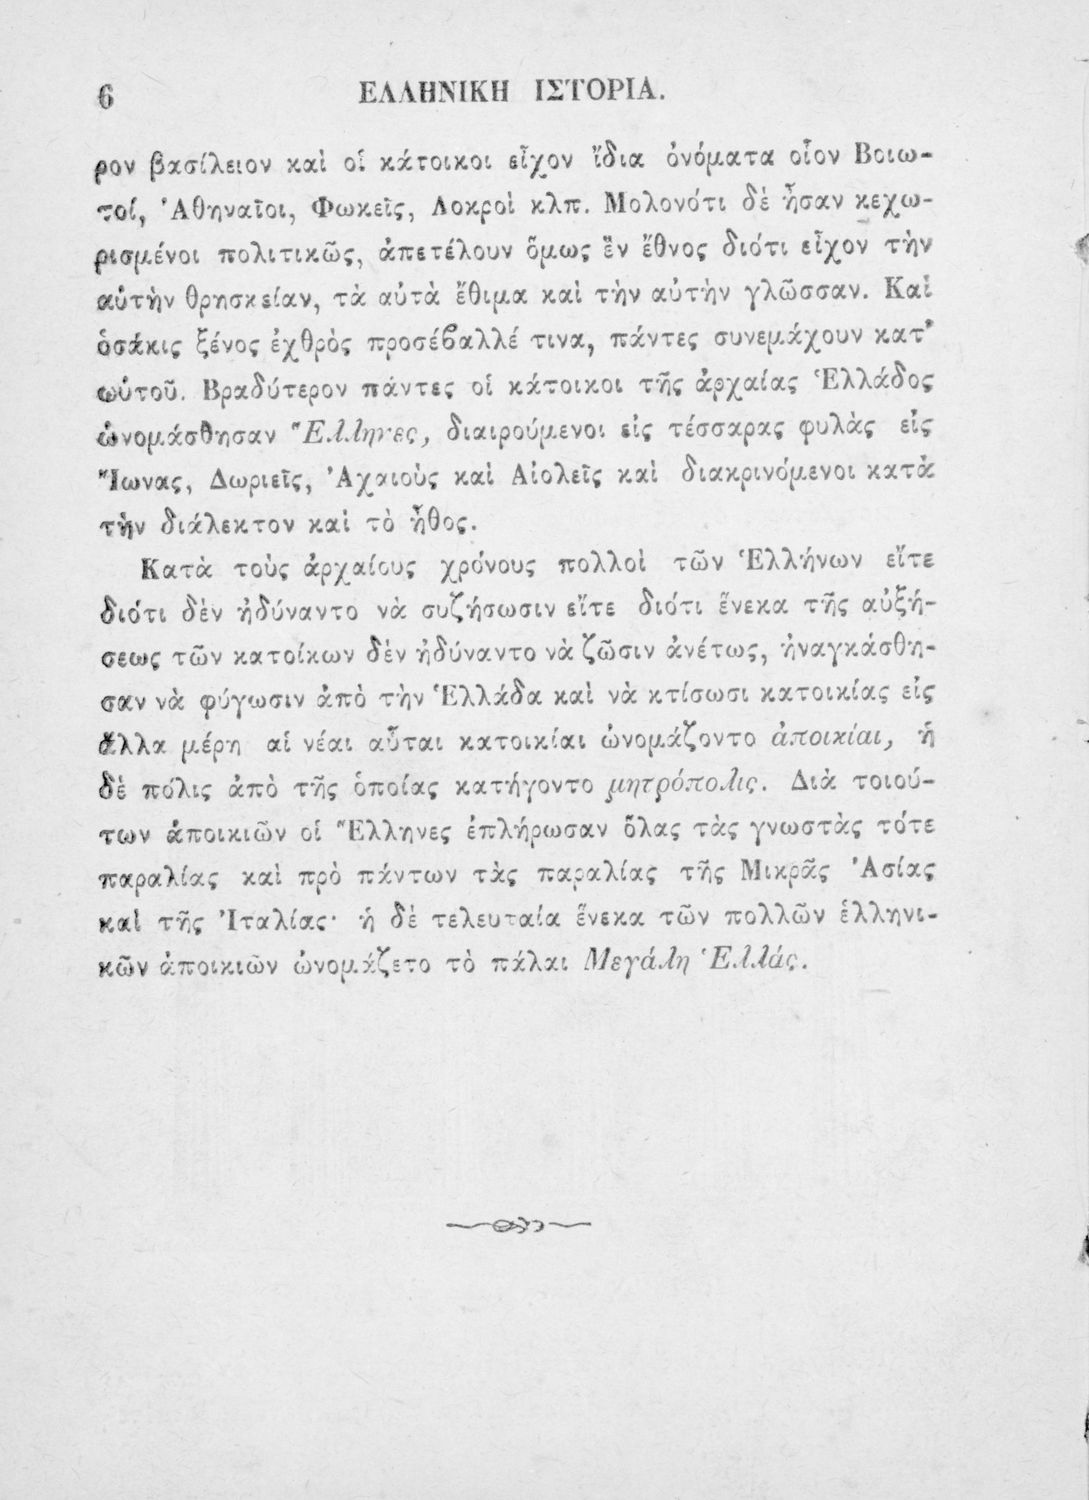 6 ΕΛΛΗΝΙΚΗ ΙΣΤΟΡΙΑ.
ρον βασίλειον καὶ οἱ κάτοικοι εἶχον ἴδια ὀνόματα οἷον Βοιω-
τοί, Ἀθηναῖοι, Φωκεῖς, Λοκροὶ κλπ. Μολονότι δὲ ἦσαν κεχω-
ρισμένοι πολιτικῶς, ἀπετέλουν ὅμως ἓν ἔθνος διότι εἶχον τὴν
αὐτὴν θρησκείαν, τὰ αὐτὰ ἔθιμα καὶ τὴν αὐτὴν γλῶσσαν. Καὶ
ὁσάκις ξένος ἐχθρὸς προσέϐαλλέ τινα, πάντες συνεμάχουν κατ’
αὐτοῦ. Βραδύτερον πάντες οἱ κάτοικοι τῆς ἀρχαίας Ἑλλάδος
ὠνομάσθησαν Ἕλληνες, διαιρούμενοι εἰς τέσσαρας φυλὰς εἰς
Ἴωνας, Δωριεῖς, Ἀχαιοὺς καὶ Αἰολεῖς καὶ διακρινόμενοι κατὰ
τὴν διάλεκτον καὶ τὸ ἦθος.
Κατὰ τοὺς ἀρχαίους χρόνους πολλοὶ τῶν Ἑλλήνων εἴτε
διότι δὲν ἠδύναντο νὰ συζήσωσιν εἴτε διότι ἕνεκα τῆς αὐξή-
σεως τῶν κατοίκων δὲν ἠδύναντο νὰ ζῶσιν ἀνέτως, ἠναγκάσθη-
σαν νὰ φύγωσιν ἀπὸ τὴν Ἑλλάδα καὶ νὰ κτίσωσι κατοικίας εἰς
ἄλλα μέρη αἱ νέαι αὗται κατοικίαι ὠνομάζοντο ἀποικίαι, ἡ
δὲ πόλις ἀπὸ τῆς ὁποίας κατήγοντο μητρόπολις. Διὰ τοιού-
των ἀποικιῶν οἱ Ἕλληνες ἐπλήρωσαν ὅλας τὰς γνωστὰς τότε
παραλίας καὶ πρὸ πάντων τὰς παραλίας τῆς Μικρᾶς Ἀσίας
καὶ τῆς Ἰταλίας· ἡ δὲ τελευταία ἕνεκα τῶν πολλῶν ἑλληνι-
κῶν ἀποικιῶν ὠνομάζετο τὸ πάλαι Μεγάλη Ἑλλάς.